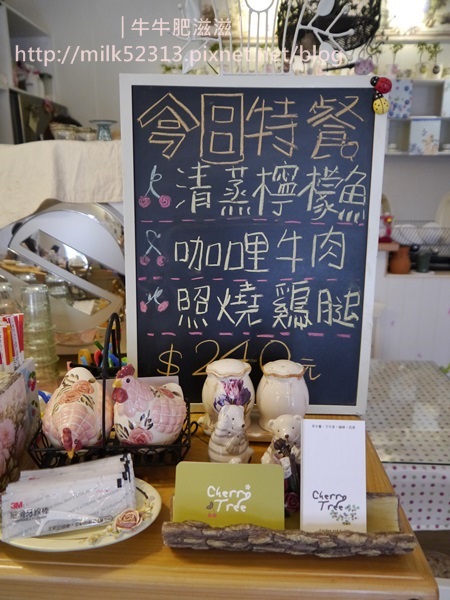 |牛牛肥滋滋
http://milk52313.pixnet.net/blog
今日特餐
清蒸檸檬魚
咖哩牛肉
照燒鷄腿
$240元
Cherry
Tree
Cherry
Tree
3M